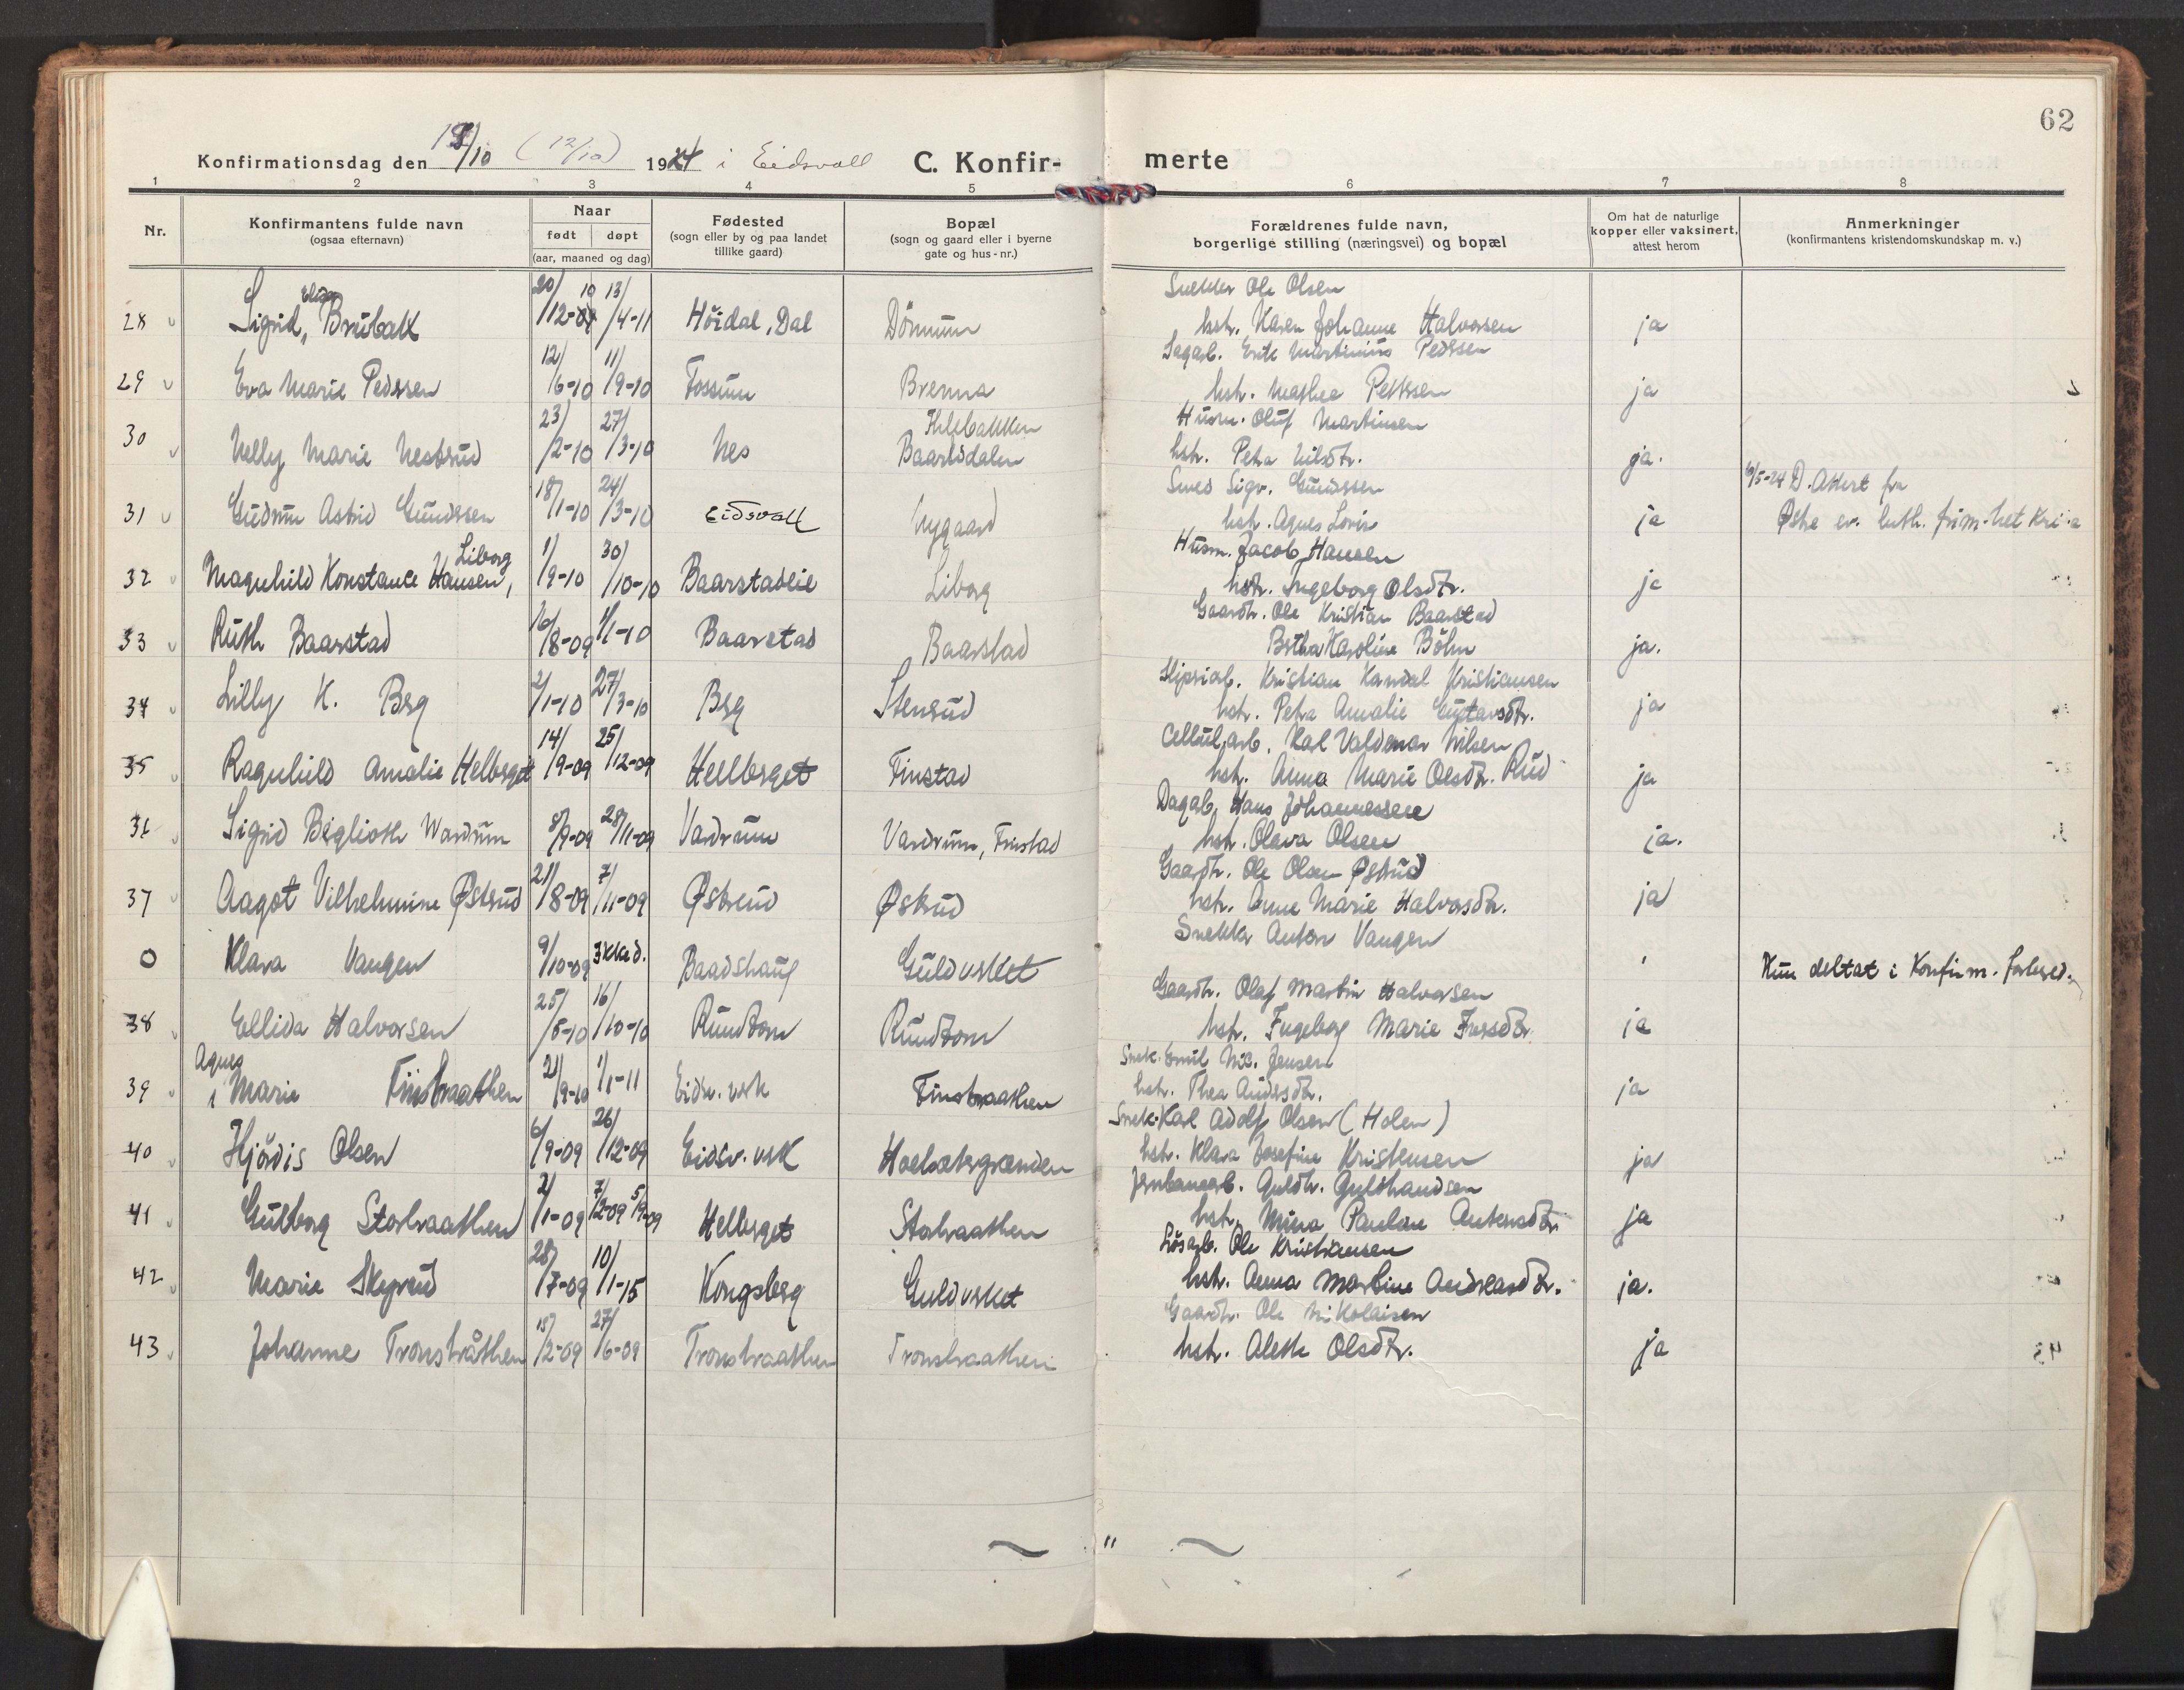 62
Konfirmationsdag den /10 (12/10) 1924 i Eidsvoll C. Konfir- merte
1 2 3 4 5 6 7 8
Nr. Konfirmantens fulde navn (ogsaa efternavn) Naar født døpt (aar, maaned og dag) Fødested (sogn eller by og paa landet tillike gaard) Bopæl (sogn og gaard eller i byerne gate og hus-nr.) Forældrenes fulde navn, borgerlige stilling (næringsvei) og bopæl Om hat de naturlige kopper eller vaksinert, attest herom Anmerkninger (konfirmantens kristendomskundskap m. v.)
Snekker Ole Olsen
28 Sigrid, Brubakk 20/12-10 13/4-11 Höidal, Dal Dönnum hstr. Karen Johanne Halvorsen ja
Sagarb. Martinius Pedersen
29 Eva Marie Pedersen 12/6-10 11/9-10 Fossum Brenna hstr. Mathea Pettersen ja
Husm. Oluf Martinsen
30 Nelly Marie Nestrud 23/2-10 27/3-10 Nes Baarlidalen hstr. Petra Nilsdtr. ja.
Smed Sigv. Gundersen 6/5-24 D. Attest fra
31 Gudrun Astrid Gundersen 18/1-10 24/3-10 Eidsvoll Nygaard hstr. Agnes Lovise ja Østre ev. luth. frim-het Kr:a
Liborg Husm. Jacob Hansen
32 Magnhild Konstance Hansen, 1/9-10 30/10-10 Baarstadeie Liborg hstr. Ingeborg Olsdtr. ja
Gaardbr. Ole Kristian Baarstad
33 Ruth Baarstad 16/8-09 1/1-10 Baarstad Baarstad Bertha Karoline Böhn ja.
Sliperiarb. Kristian Kandal Kristiansen
34 Lilly K. Berg 2/1-10 27/3-10 Berg Stensrud hstr. Petra Amalie Gustavsdtr. ja
Cellul.arb. Karl Valdemar Nilsen
35 Ragnhild Amalie Helberget 14/9-09 25/12-09 Hellberget Finstad hstr. Anna Marie Olsdtr. Rud ja
Dagarb. Hans Johannessen
36 Sigrid Bergljoth Wardrum 8/9-09 28/11-09 Vardrum Vardrum, Finstad hstr. Olava Olsen ja.
Gaardbr. Ole Olsen Østrud
37 Aagot Vilhelmine Østrud 21/8-09 7/11-09 Østrud Østrud hstr. Anne Marie Halvorsdtr. ja
Snekker Anton Vangen
0 Klara Vangen 9/10-09 Ikke d. Baadshaug Guldverket Kun deltat i Konfirm. forbered.
Gaardbr. Olaf Martin Halvorsen
38 Ellida Halvorsen 25/5-10 16/10-10 Rundtom Rundtom hstr. Ingeborg Marie Iversdtr. ja
Agnes Snek. Emil Nic. Jensen
39 Marie Finstraathen 21/9-10 1/1-11 Eidsv. verk Finstraathen hstr. Thea Andersdtr. ja
Snek. Karl Adolf Olsen (Holen)
40 Hjördis Olsen 6/9-09 26/12-09 Eidsv. verk hstr. Klara Josefine Kristensen ja
Jernbanearb. Guldbr. Guldbrandsen
41 Gulborg Storbraathen 2/1-09 7/2-09 5/9-09 Helberget Storbraathen hstr. Mina Pauline Antonsdtr. ja
Lösarb. Ole Kristiansen
42 Marie Skyrud 28/7-09 10/1-15 Kongsberg Guldverket hstr. Anna Martine Andreasdtr. ja.
Gaardbr. Ole Nikolaisen
43 Johanne Tronsbråthen 15/2-09 27/6-09 Tronsbraathen Tronsbraathen hstr. Alette Olsdtr. ja